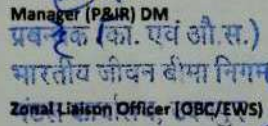 Manager (P&IR) DM
प्रबन्धक (का. एवं औ.स.)
भारतीय जीवन बीमा निगम
Zonal Liaison Officer (OBC/EWS)